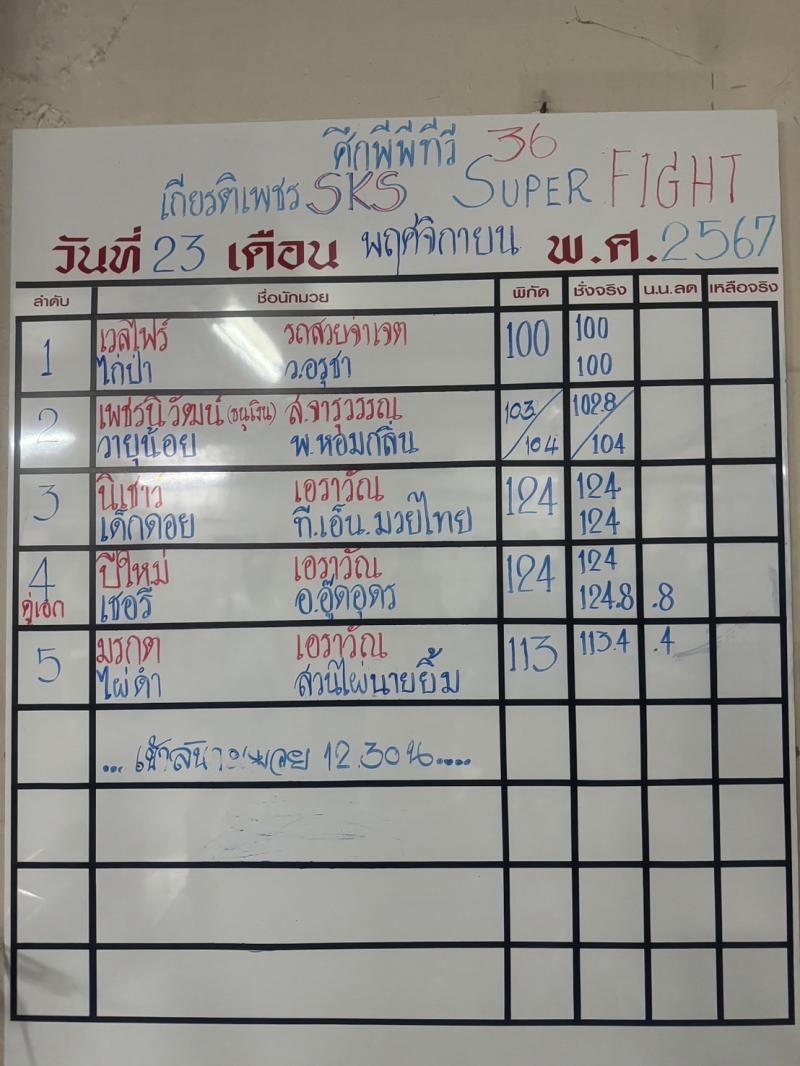 ศึกพีพีทีวี 36
เกียรติเพชร SKS SUPER FIGHT
วันที่ 23 เดือน พฤศจิกายน พ.ศ. 2567
ลำดับ ชื่อนักมวย พิกัด ชั่งจริง น.น.ลด เหลือจริง
1 เวลไฟร์ รถสวยจ่าเจต 100 100
ไก่ป่า ว.อรุชา 100
2 เพชรนิวัฒน์ (ธนูเงิน) ส.จารุวรรณ 103/104 102.8/104
วายุน้อย พ.หอมกลิ่น
3 นิเชาว เอราวัณ 124 124
เด็กดอย ที.เอ็น.มวยไทย 124
4 ปีใหม่ เอราวัณ 124 124
คู่เอก เชอรี่ อ.อู๊ดอุดร 124.8 .8
5 มรกต เอราวัณ 113 113.4 .4
ไผ่ดำ สวนไผ่นายยิ้ม
... 12.30 น. ....